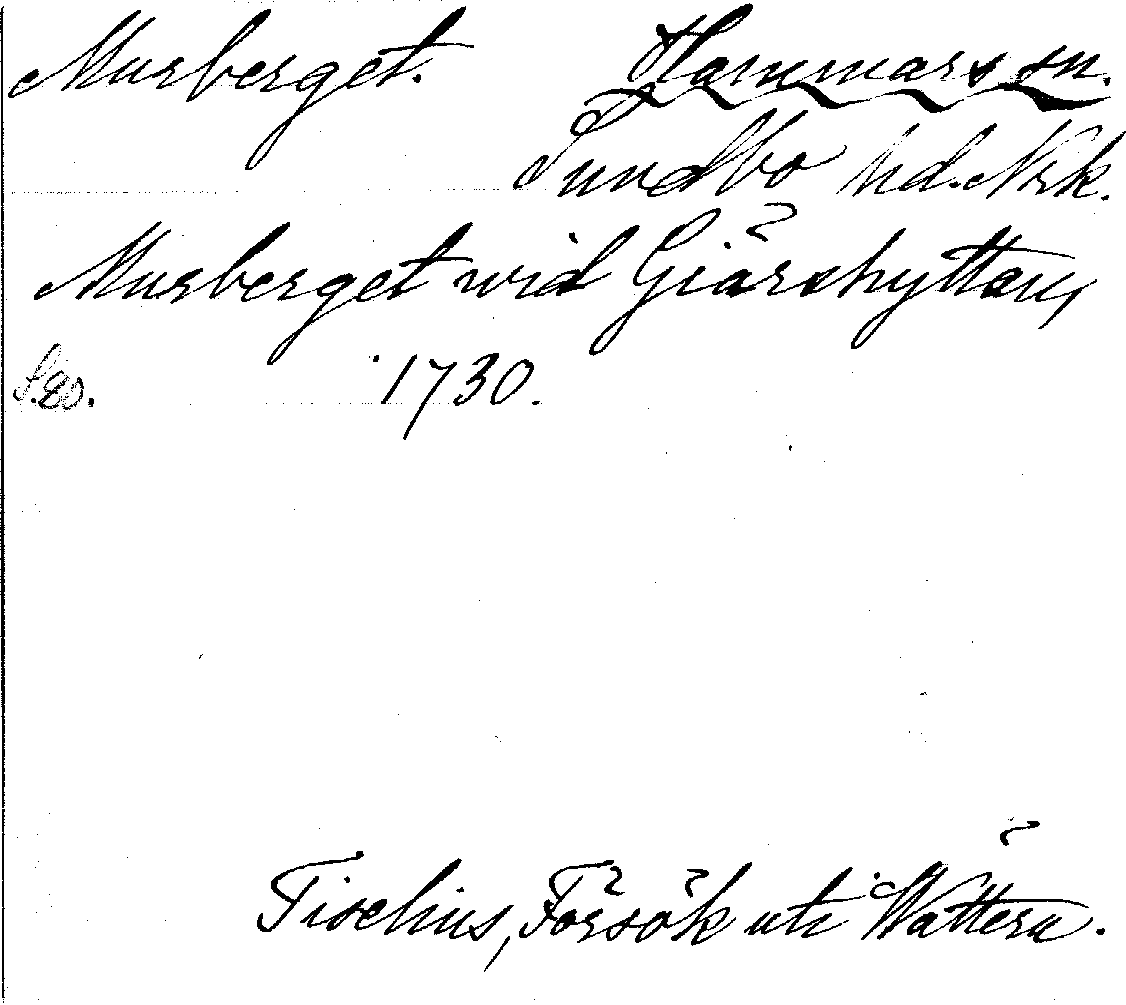 Murberget. Hammars sn.
Sundbo hd. Nrk.
Murberget wid Giärshyttan,
S. 80. 1730.
Tiselius, Försök uti Wättern.